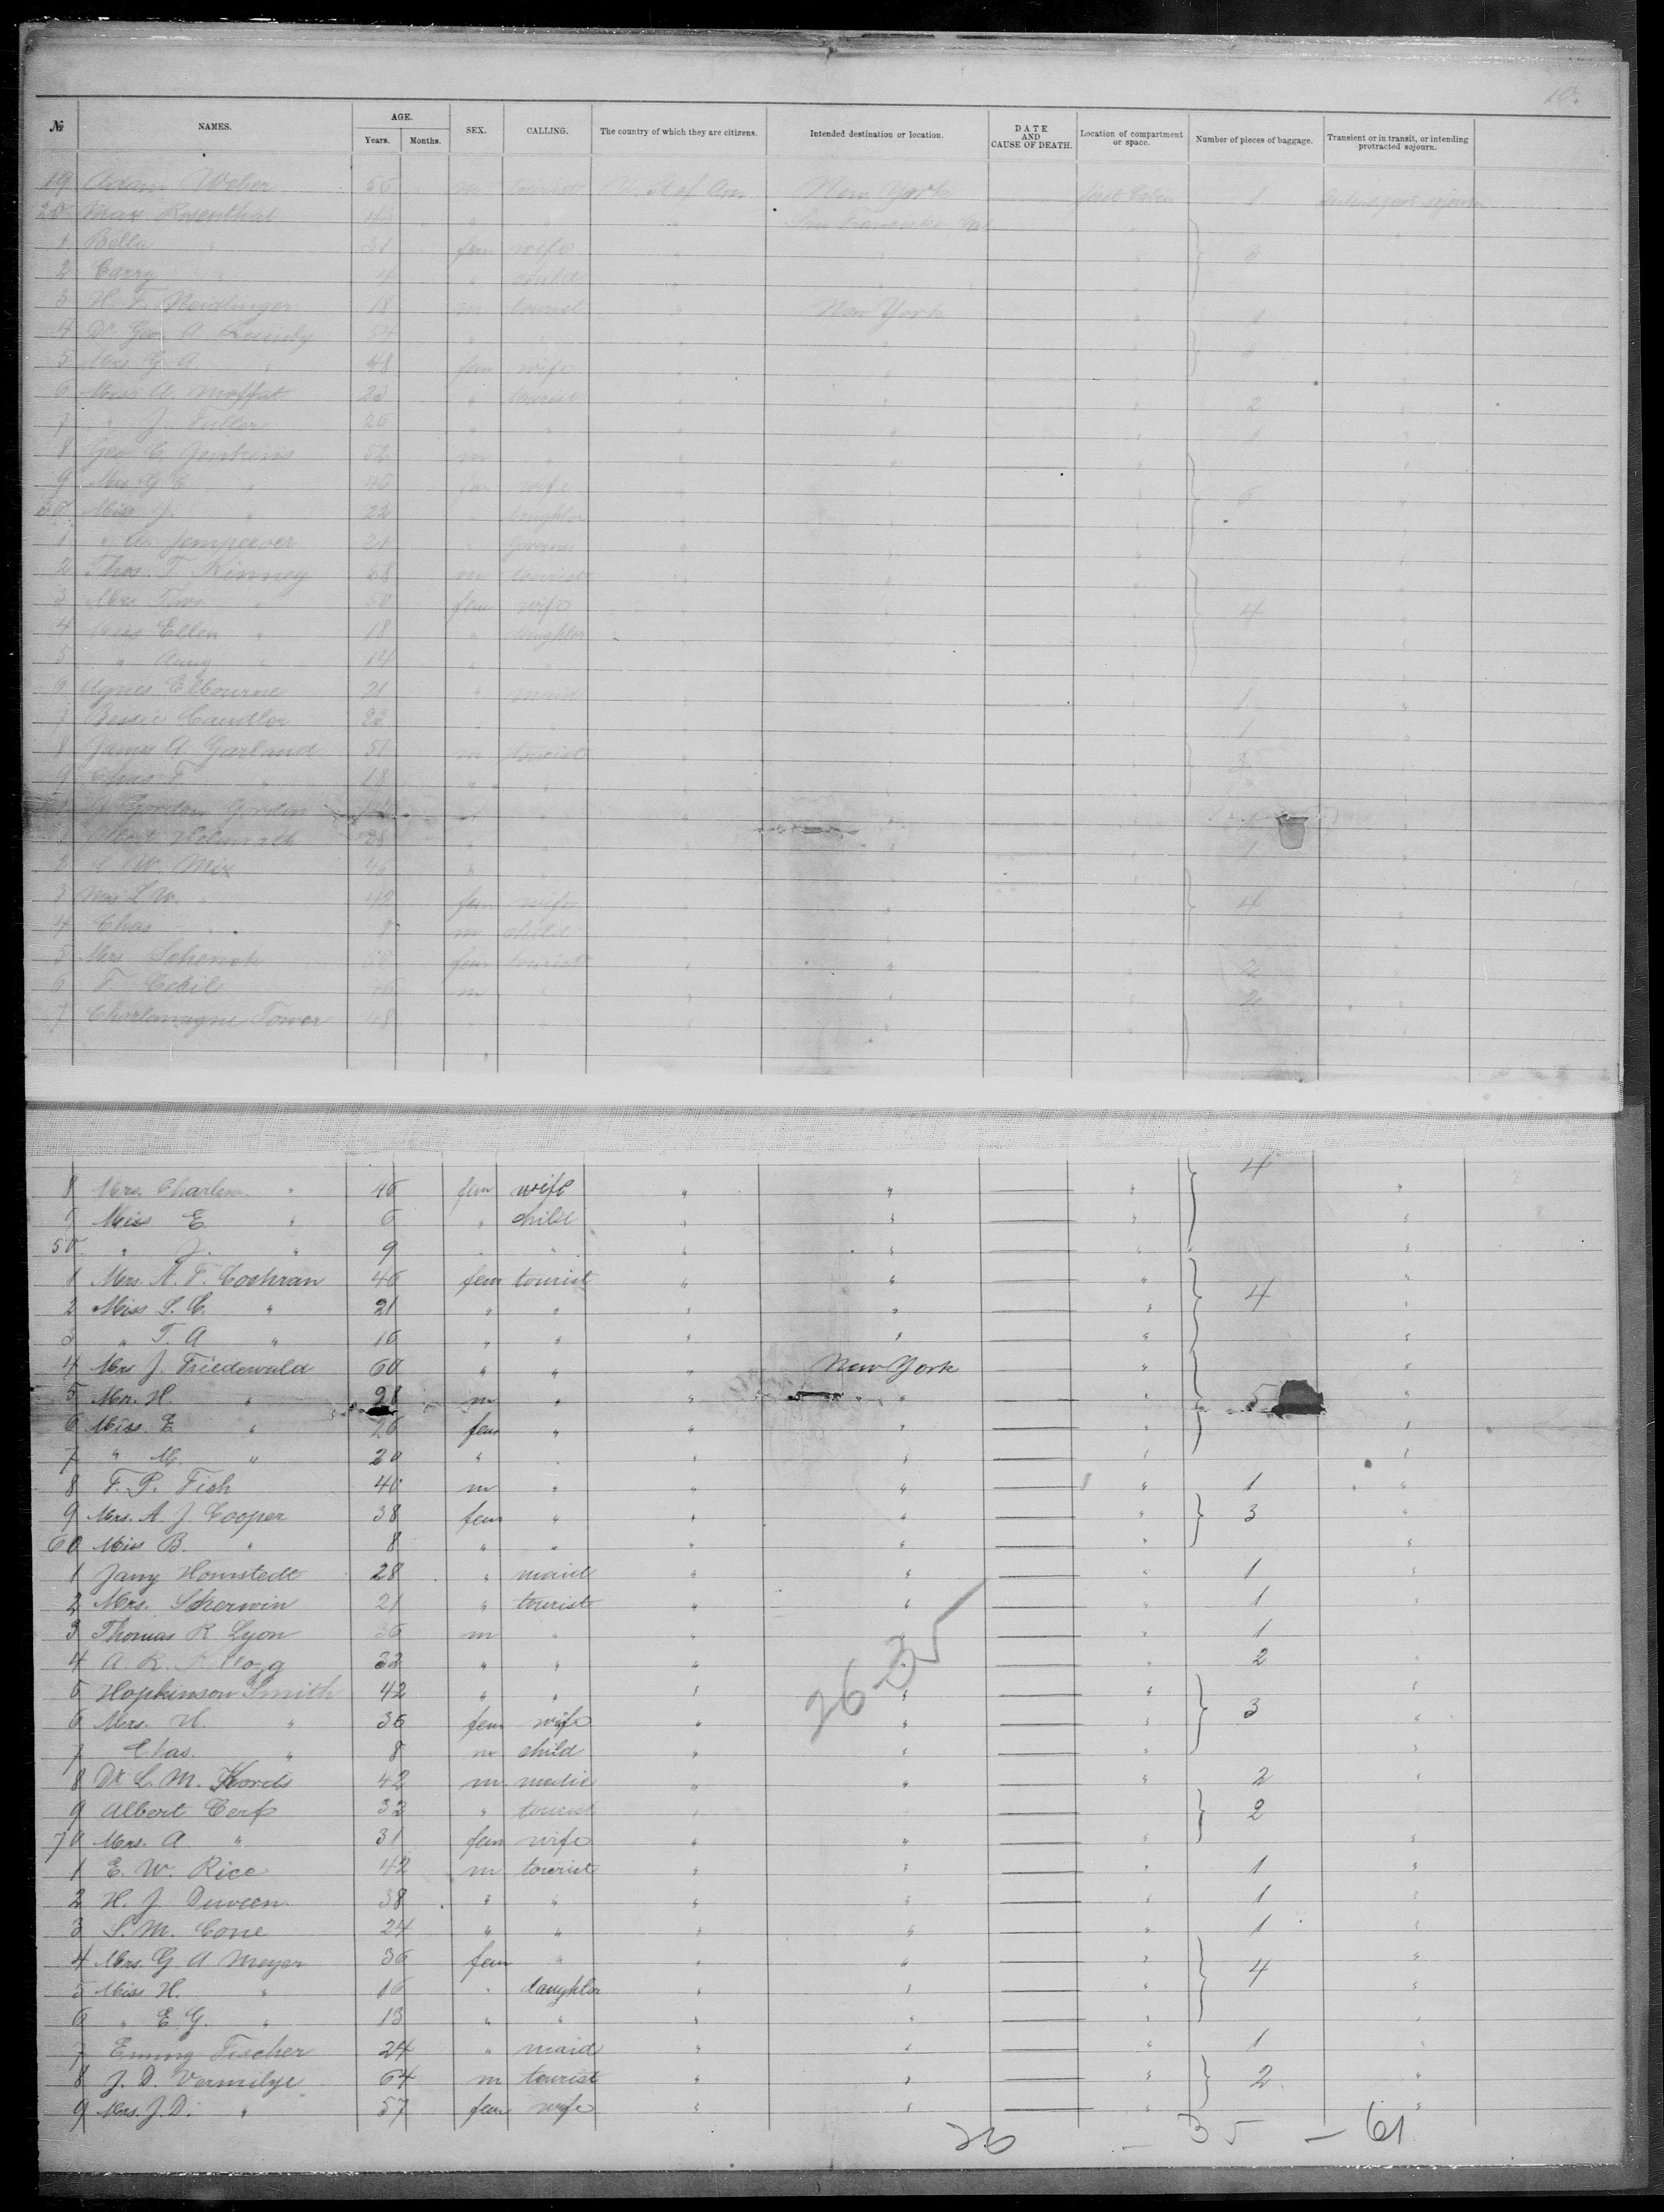 10.
№ NAMES. AGE. Years. Months. SEX. CALLING. The country of which they are citizens. Intended destination or location. DATE AND CAUSE OF DEATH. Location of compartment or space. Number of pieces of baggage. Transient or in transit, or intending protracted sojourn.
19 Adam Weber 56 m tourist U. St. of Am. New York first Cabin 1 sojourn
20 Max Rosenthal 43 " " " San Francisco Cal "
1 Bella " 31 fem wife " " " 3
2 Carry " 4 " child " " "
3 H. F. Neidlinger 18 m tourist " New York " 1 "
4 Dr. Geo. A. 54 " " " " " 3
5 Mrs. G. A. " 48 fem wife " " "
6 Miss A. Moffat 23 " tourist " " " 2 "
7 " J. Fuller 26 " " " " " 1 "
8 Geo. C. Jenkins 52 m " " " " "
9 Mrs. G. C. " 46 fem wife " " " 6 "
30 Miss J. " 22 " daughter " " " "
1 " A. 21 " " " " "
2 Thos. T. Kinney 68 m tourist " " " "
3 Mrs. Thos. " 50 fem wife " " " 4 "
4 Miss Ellen " 18 " daughter " " " "
5 " " 14 " " " " " "
6 Agnes Elbourne 21 " maid " " " 1 "
7 Bessie Candler 22 " " " " " 1 "
8 James A. Garland 51 m tourist " " " 3 "
9 Chas. T. " 18 " " " " " "
Gordon " " " " "
1 Albert 28 " " " " " 1 "
2 L. W. Mix 46 " " " " " "
3 Mrs. L. W. " 42 fem wife " " " 4 "
4 Chas. " 8 m child " " " "
5 Mrs. Schenck fem tourist " " " 2 "
6 F. m " " " " 2 "
7 Charlemagne Tower 48 " " " " " "
8 Mrs. Charlem. " 46 fem wife " " " 4 "
9 Miss E. " 6 " child " " " "
50 " J. " 9 " " " " " "
1 Mrs. A. F. Cochran 46 fem tourist " " " "
2 Miss S. C. " 21 " " " " " 4 "
3 " T. A " 16 " " " " " "
4 Mrs J. Friedewald 60 " " " New York " "
5 Mr. H. " 28 m " " " " 5 "
6 Miss. E " 26 fem " " " " "
7 " M. " 20 " " " " " "
8 F. P. Fish 40 m " " " " 1 "
9 Mrs. A. J. Cooper 38 fem " " " " 3 "
60 Miss B. " 8 " " " " " "
1 Jany Homstedt 28 " maid " " " 1 "
2 Mrs. Scherwin 21 " tourist " " " 1 "
3 Thomas R Lyon 36 m " " " " 1
4 A. R. 32 " " " " " 2 "
5 Hopkinson Smith 42 " " " " " "
6 Mrs. H. " 36 fem wife " " " 3 "
7 Chas. " 8 m child " " " "
8 Dr L. M. 42 m medic " " " 2 "
9 Albert Cerf 32 " tourist " 2
70 Mrs. A " 31 fem wife " " " "
1 E. W. Rice 42 m tourist " " " 1 "
2 H. J. Duveen 38 " " " " " 1 "
3 S. M. Cone 24 " " " " " 1 "
4 Mrs. G A Meyer 36 fem " " " " "
5 Miss H. " 16 " daughter " " " 4 "
6 " E. G. " 13 " " " " " "
7 Emmy Fischer 24 " maid " " " 1 "
8 J. D. Vermilye 64 m tourist " " " 2 "
9 Mrs. J. D. " 57 fem wife " " " "
26 35
26 – 35 – 61